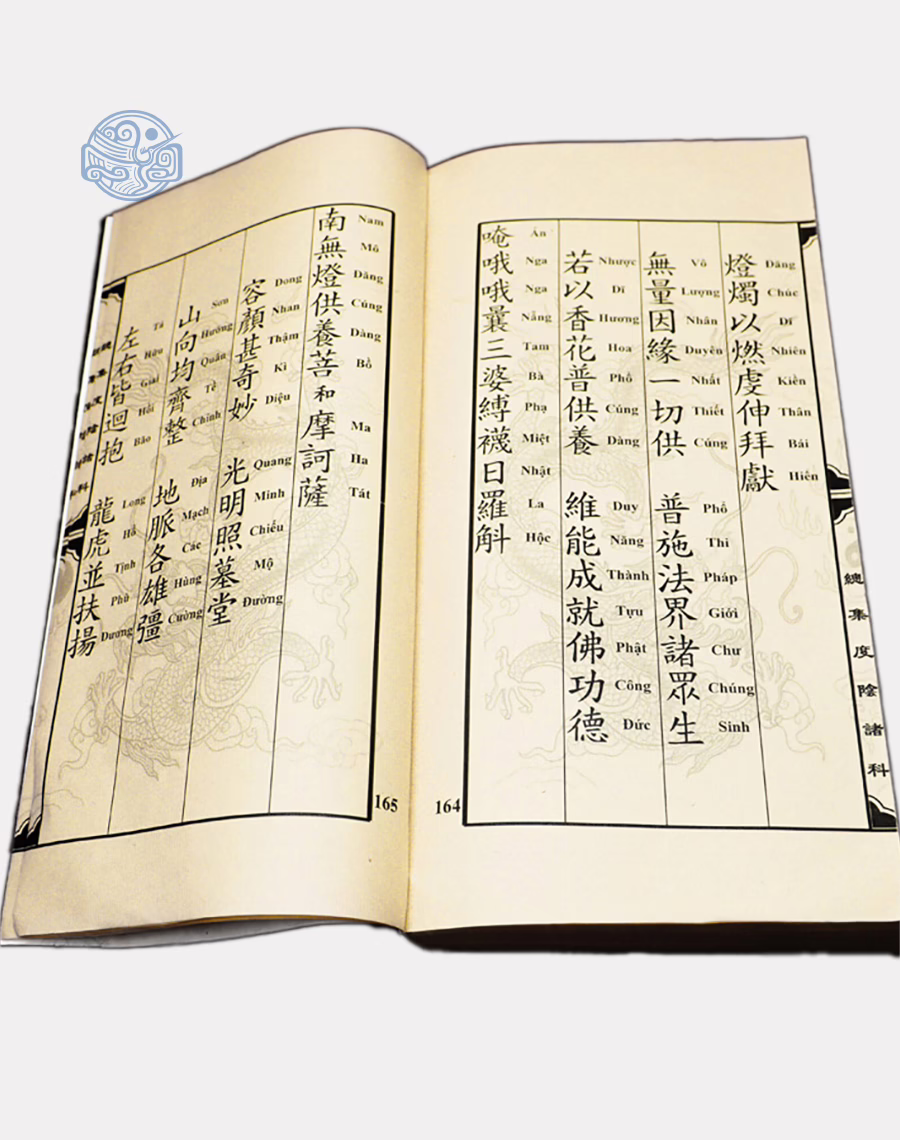 總集度陰諸科
燈燭以燃虔伸拜獻
Đăng Chúc Dĩ Nhiên Kiền Thân Bái Hiến
無量因緣一切供 普施法界諸眾生
Vô Lượng Nhân Duyên Nhất Thiết Cúng Phổ Thi Pháp Giới Chư Chúng Sinh
若以香花普供養 維能成就佛功德
Nhược Dĩ Hương Hoa Phổ Cúng Dàng Duy Năng Thành Tựu Phật Công Đức
唵哦哦曩三婆縛襪日羅斛
Án Nga Nga Nẵng Tam Bà Phạ Miệt Nhật La Hộc
164
南無燈供養菩和摩訶薩
Nam Mô Đăng Cúng Dàng Bồ Ma Ha Tát
容顏甚奇妙 光明照墓堂
Dong Nhan Thậm Kì Diệu Quang Minh Chiếu Mộ Đường
山向均齊整 地脈各雄彊
Sơn Hướng Quân Tề Chỉnh Địa Mạch Các Hùng Cường
左右皆迴抱 龍虎並扶揚
Tả Hữu Giai Hồi Bão Long Hổ Tịnh Phù Dương
165